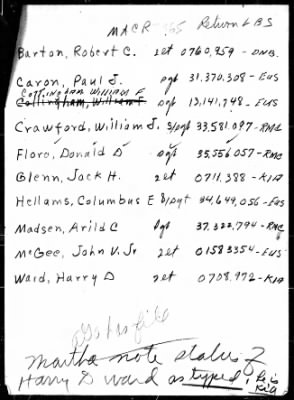 MACR 935 Return to BS
Barton, Robert C. 2Lt 0760,359 - DNB.
Caron, Paul J. Sgt 31,370,308 - EUS
COLLINGHAM WILLIAM F.
Collingham, William F Sgt 13,141,748 - EUS
Crawford, William J. S/Sgt 33,581,097 - RMC
Floro, Donald D Sgt 35,556,057 - RMC
Glenn, Jack H. 2Lt 0711,388 - KIA
Hellams, Columbus E S/Sgt 34,649,056 - EUS
Madsen, Arild C Sgt 37,322,794 - RMC
McGee, John V. Jr 2Lt 01583354 - EUS
Ward, Harry D 2Lt 0708,972 - KIA
file
Martha note status of
Harry D Ward as typed, he is
KIA